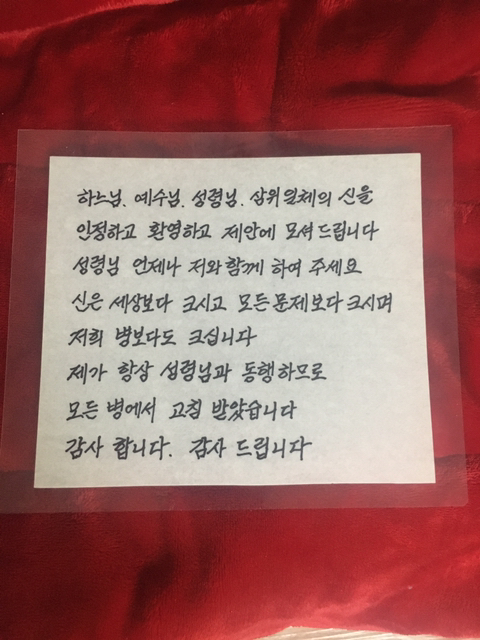 하느님. 예수님. 성령님. 삼위일체의 신을
인정하고 환영하고 제안에 모셔드립니다
성령님 언제나 저와함께 하여 주세요
신은 세상보다 크시고 모든문제보다크시며
저희 병보다도 크십니다
제가 항상 성령님과 동행하므로
모든 병에서 고침 받았습니다
감사 합니다. 감사 드립니다